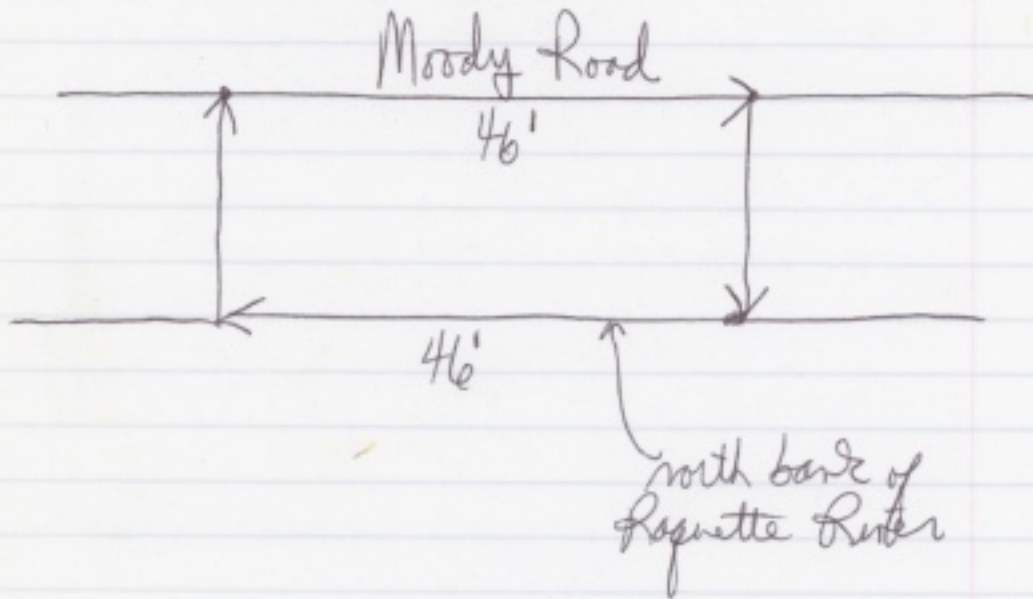 Moody Road
46'
46'
north bank of
Raquette River